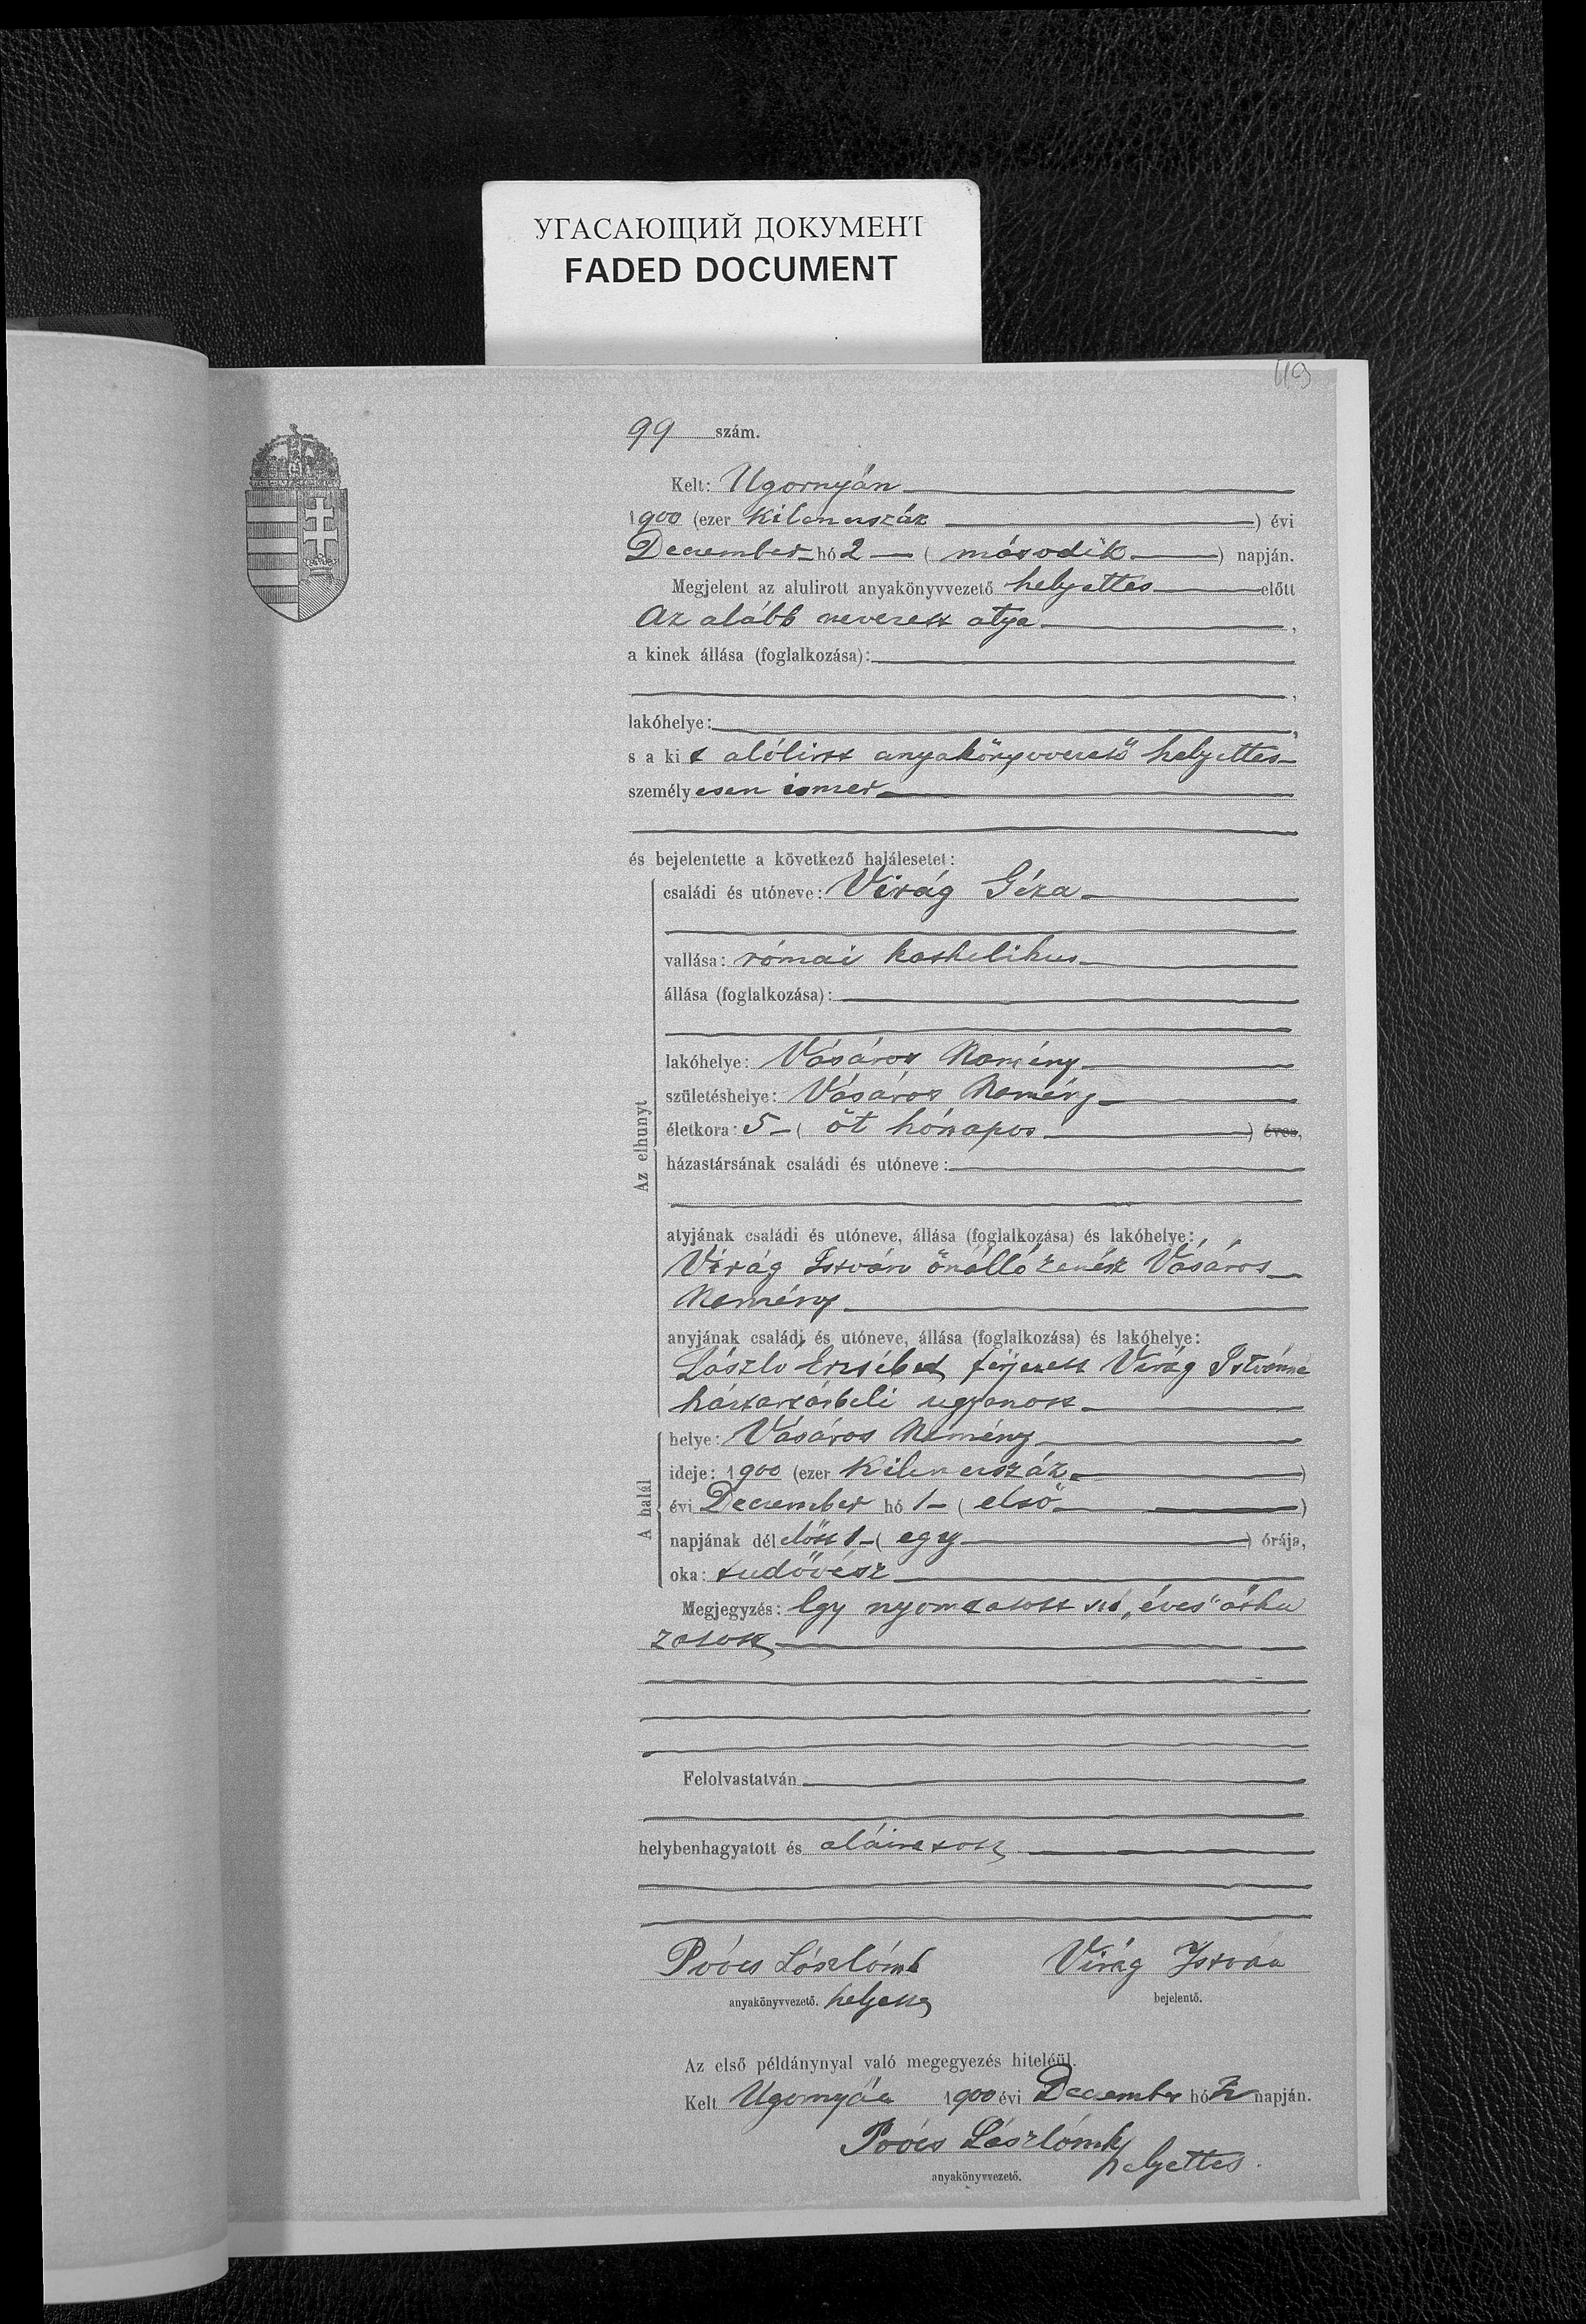 УГАСАЮЩИЙ ДОКУМЕНТ
FADED DOCUMENT
119
99 szám.
Kelt: Ugornyán
1900 (ezer kilenczszáz ) évi
December hó 2 ( második ) napján.
Megjelent az alulirott anyakönyvvezető helyettes előtt
Az alább nevezett atya ,
a kinek állása (foglalkozása):
,
lakóhelye: ,
s a kit alólirt anyakönyvvezető helyettes
személyesen ismer
és bejelentette a következő halálesetet:
Az elhunyt
családi és utóneve: Virág Géza
vallása: római katholikus
állása (foglalkozása):
lakóhelye: Vásáros Namény
születéshelye: Vásáros Namény
életkora: 5 ( öt hónapos ) éves,
házastársának családi és utóneve:
atyjának családi és utóneve, állása (foglalkozása) és lakóhelye:
Virág István önálló zenész Vásáros
Namény
anyjának családi és utóneve, állása (foglalkozása) és lakóhelye:
László Erzsébet férjezett Virág Istvánné
háztartásbeli ugyanott
A halál
helye: Vásáros Namény
ideje: 1900 (ezer kilenczszáz )
évi December hó 1 ( első )
napjának délelőtt 1 ( egy ) órája,
oka: tüdővész
Megjegyzés: Egy nyomtatott szó „éves" áthu
zatott
Felolvastatván
helybenhagyatott és aláiratott
Póócs Lászlómk Virág István
anyakönyvvezető. helyettes bejelentő.
Az első példánynyal való megegyezés hiteléül.
Kelt Ugornyán 1900 évi December hó 2 napján.
Póócs Lászlómk
anyakönyvvezető. helyettes.